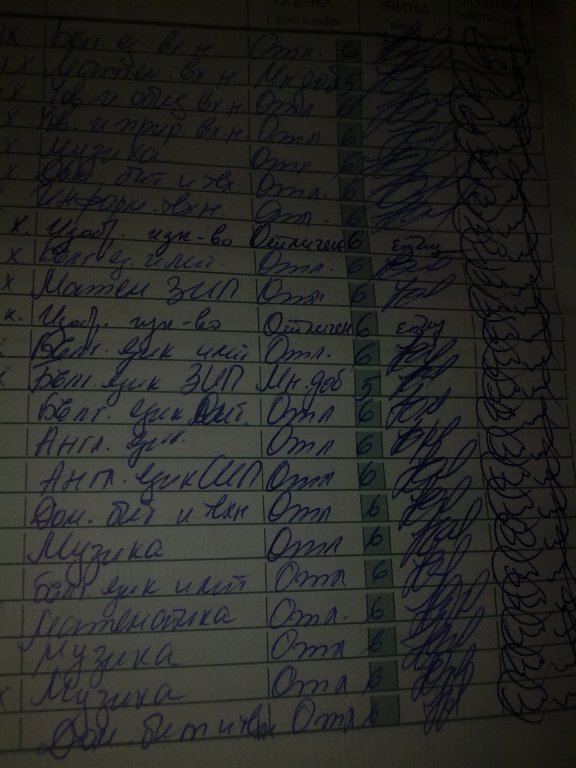 ОЦЕНКА УЧИТЕЛ
с думи и цифри
IX Бълг. ез вх. н Отл. 6
X Матем. вх. н Мн. доб 5
X Чов. и общ вх. н Отл 6
X Чов. и прир. вх. н Отл. 6
X Музика Отл 6
X Дом. бит и тех. Отл. 6
Информ. техн. Отл. 6
X. Изоб. изк-во Отличен 6
X Бълг ез и лит. Отл. 6
X Матем ЗИП Отл 6
X. Изоб. изк-во Отличен 6
Бълг. език и лит Отл. 6
Бълг. език ЗИП Мн. доб 5
Бълг. език и лит. Отл 6
Англ. език. Отл 6
Англ. език СИП Отл 6
Дом. бит и техн Отл 6
Музика Отл 6
Бълг език и лит Отл 6
Математика Отл. 6
Музика Отл 6
X Музика Отл 6
Дом. бит и техн Отл 6